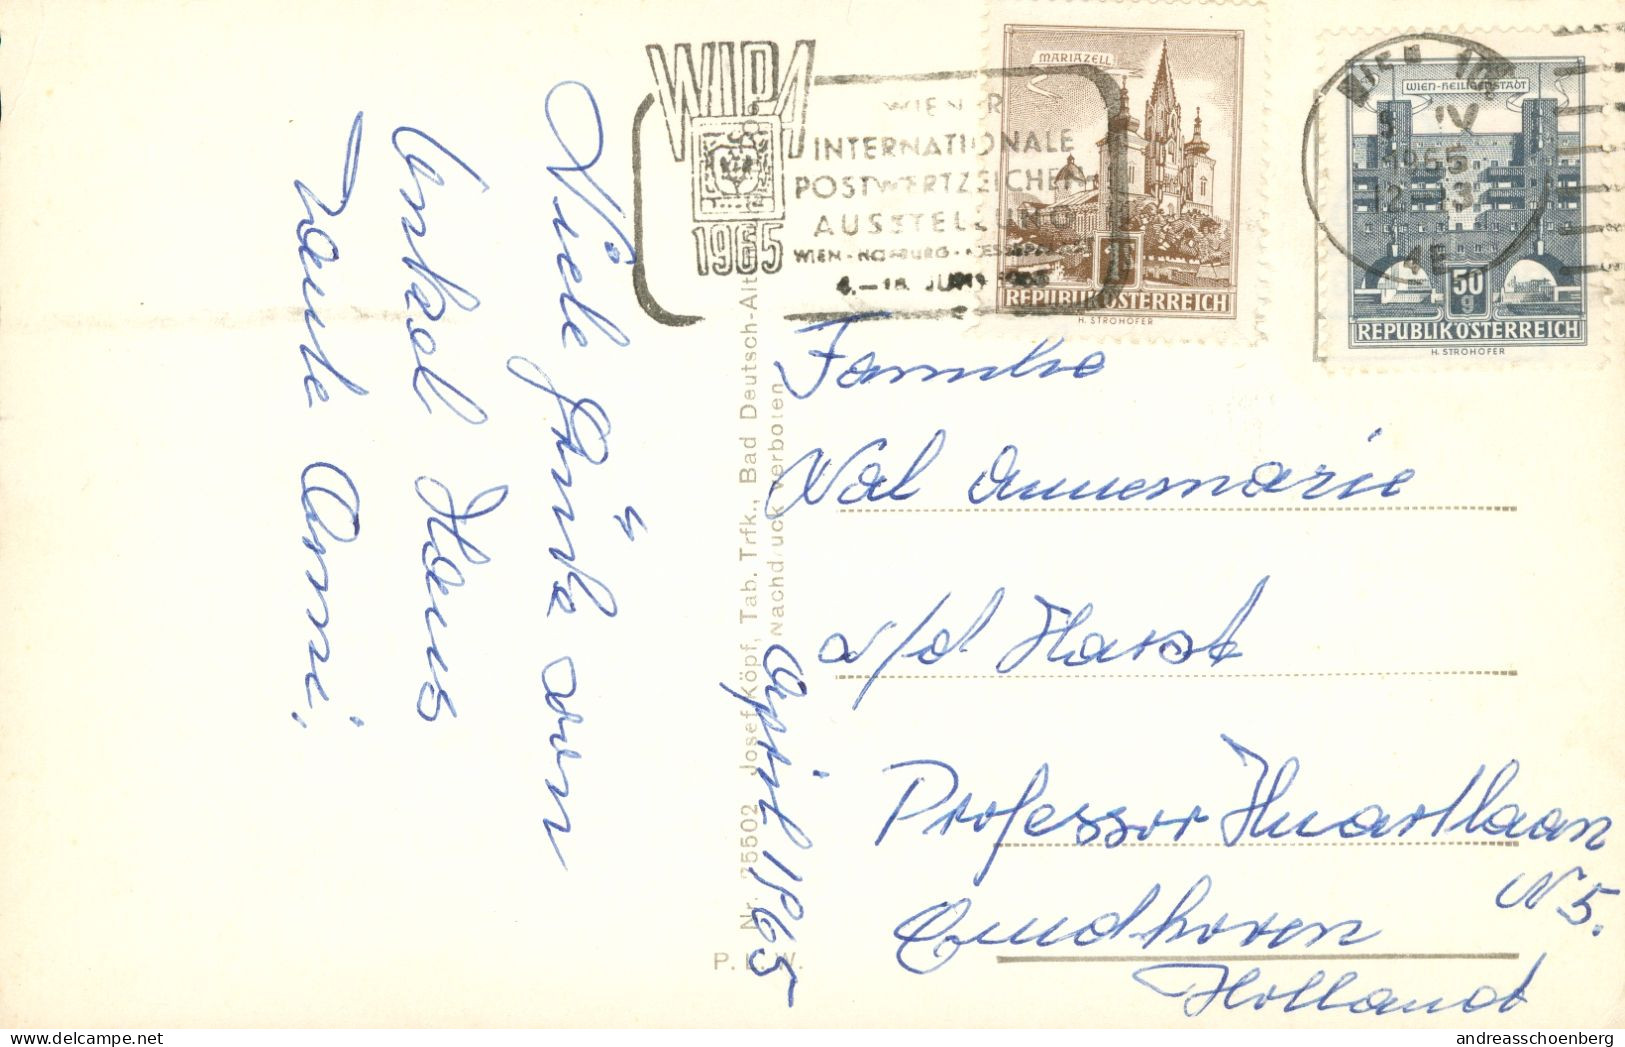 Viele Grüße von
Onkel Hans
Tante Anni.
April 1965
WIPA
1965
WIENER
INTERNATIONALE
POSTWERTZEICHEN
AUSSTELLUNG
WIEN - HOFBURG -
4.—13. JUNI 1965
MARIAZELL
REPUBLIK ÖSTERREICH
H. STROHOFER
WIEN 101
IV
1965
4E
WIEN-HEILIGENSTADT
50
g
REPUBLIK ÖSTERREICH
H. STROHOFER
Familie
Annemarie
v/d Harst
Professor
N 5.
Eindhoven
Holland
Nr. 25502 Josef Köpf, Tab. Trfk., Bad Deutsch-Alt
Nachdruck verboten
P. L. W.
www.delcampe.net
andreasschoenberg